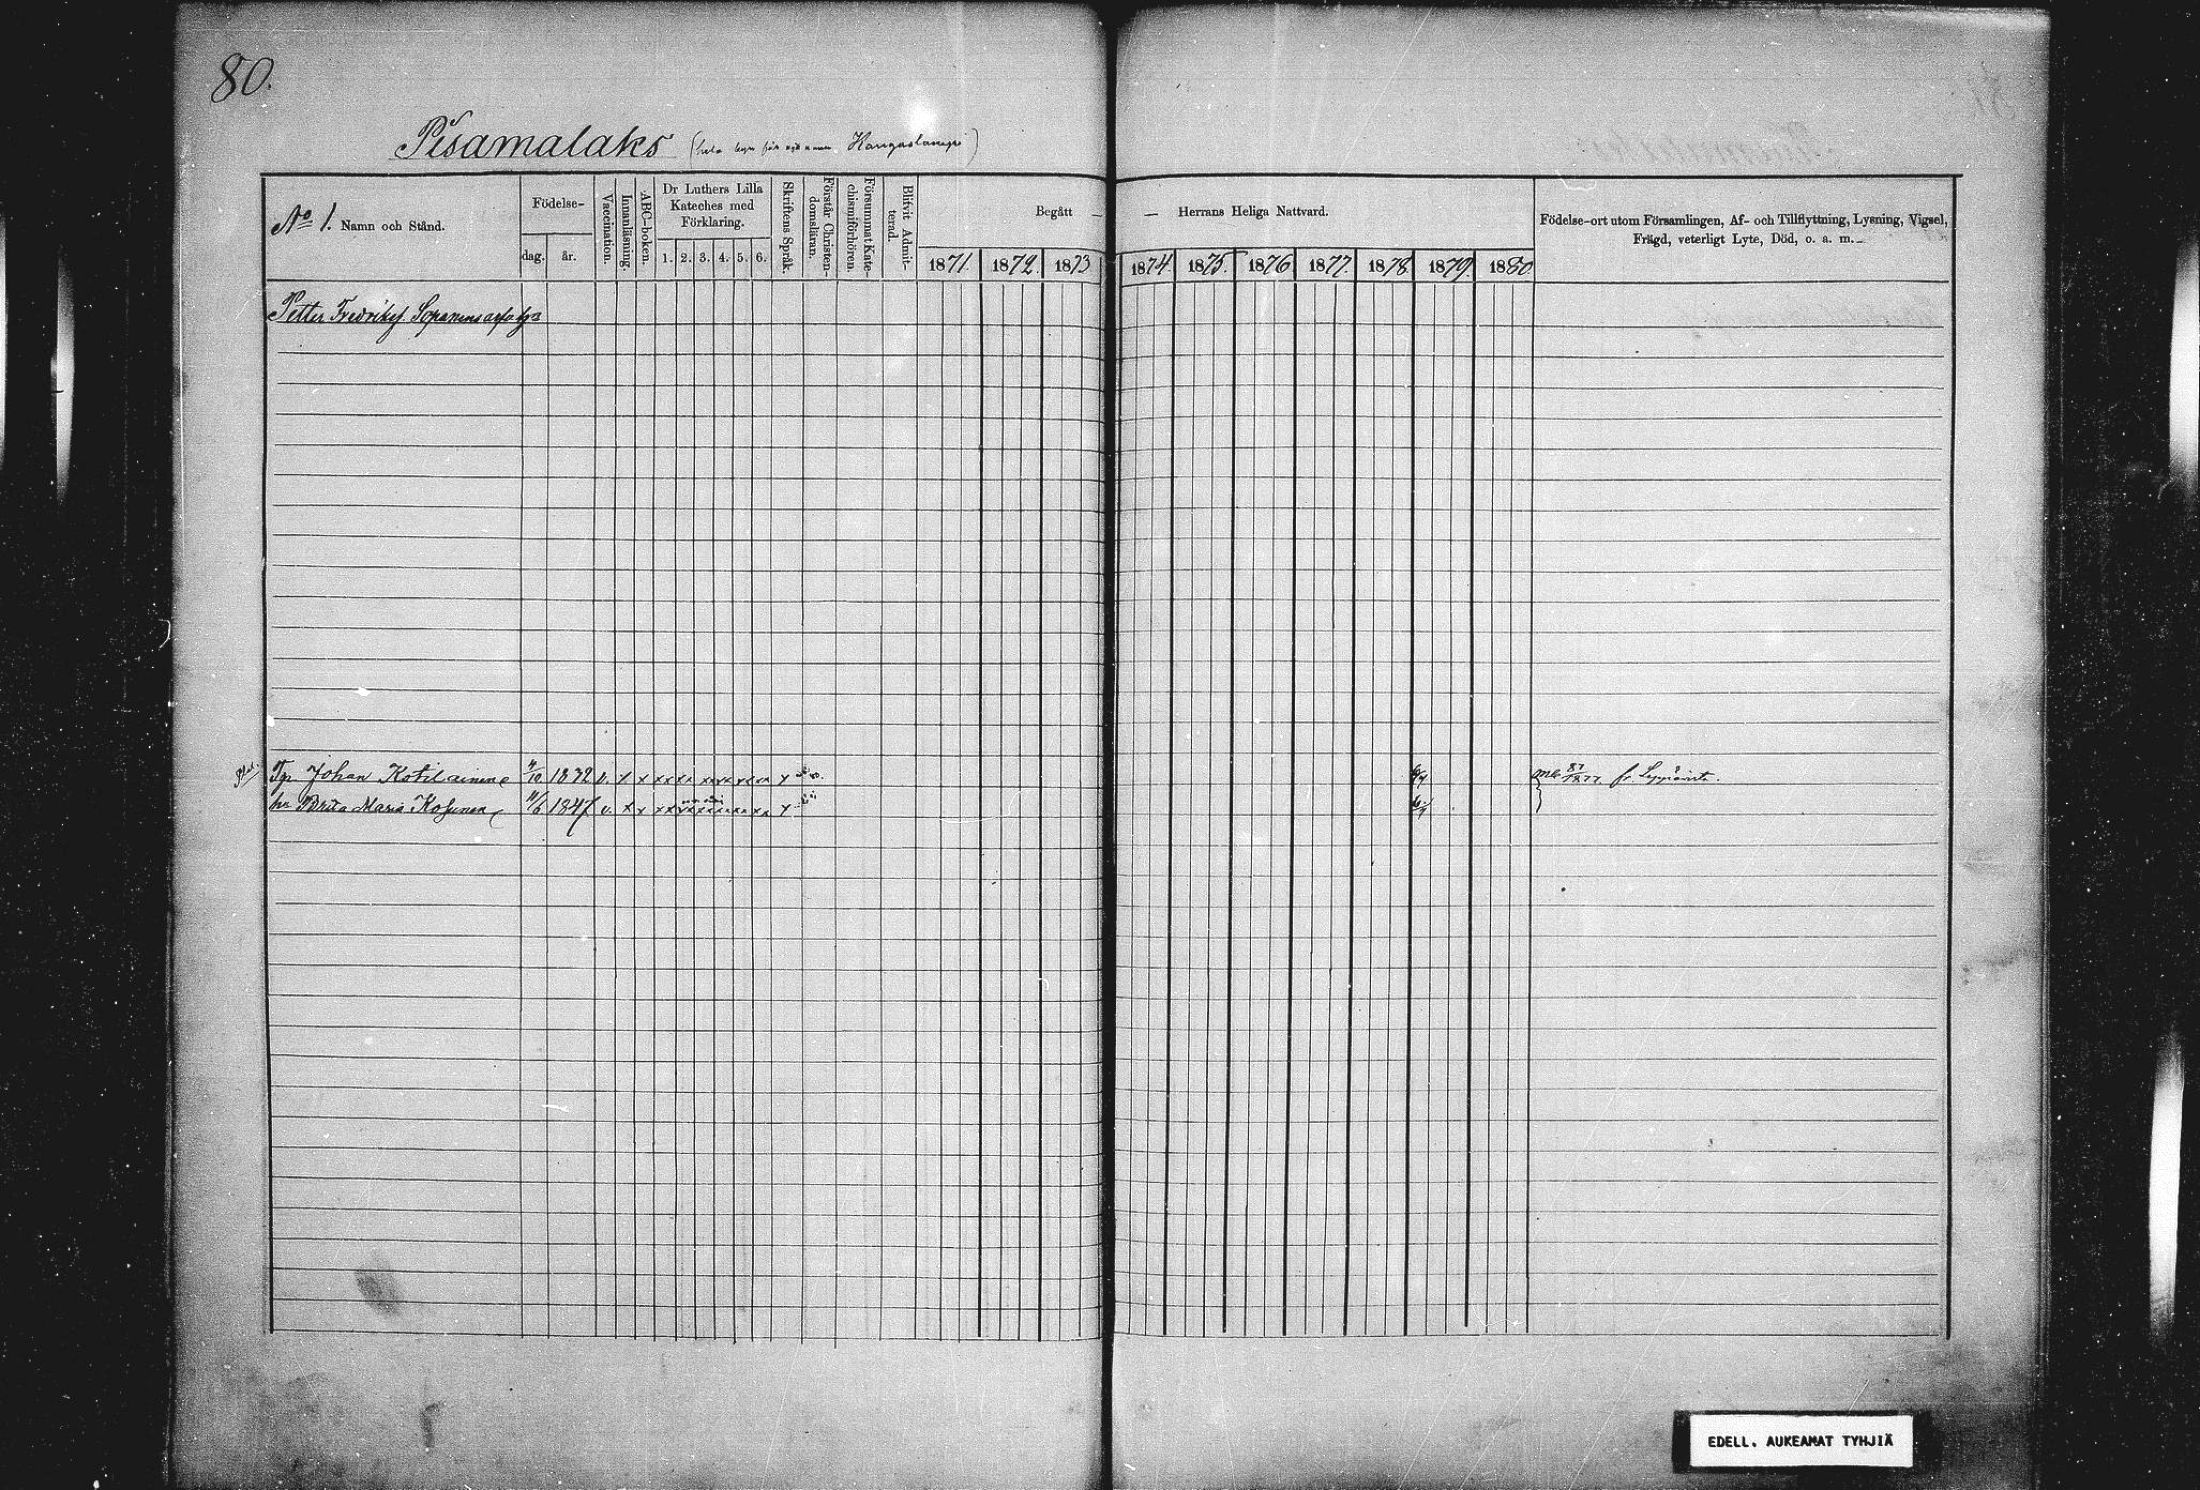 80.
Pisamalaks (hela byn för sig annan Kangaslampi)
No 1. Namn och Stånd.
Födelse-
dag. år.
Vaccination.
Innanläsning.
ABC-boken.
Dr Luthers Lilla
Kateches med
Förklaring.
1. 2. 3. 4. 5. 6.
Skriftens Språk.
Förstår Christen-
domsläran.
Försummat Kate-
chismiförhören.
Blifvit Admit-
terad.
Begått —
1871. 1872. 1873
— Herrans Heliga Nattvard.
1874. 1875. 1876 1877. 1878 1879. 1880
Födelse-ort utom Församlingen, Af- och Tillflyttning, Lysning, Vigsel,
Frägd, veterligt Lyte, Död, o. a. m.
Petter Fredriks. Sopanens
Johan Kotilainen v. x x
hu Brita Maria Kosunen 11/6 1847 v. x x
87/1877 fr
EDELL. AUKEAMAT TYHJIÄ